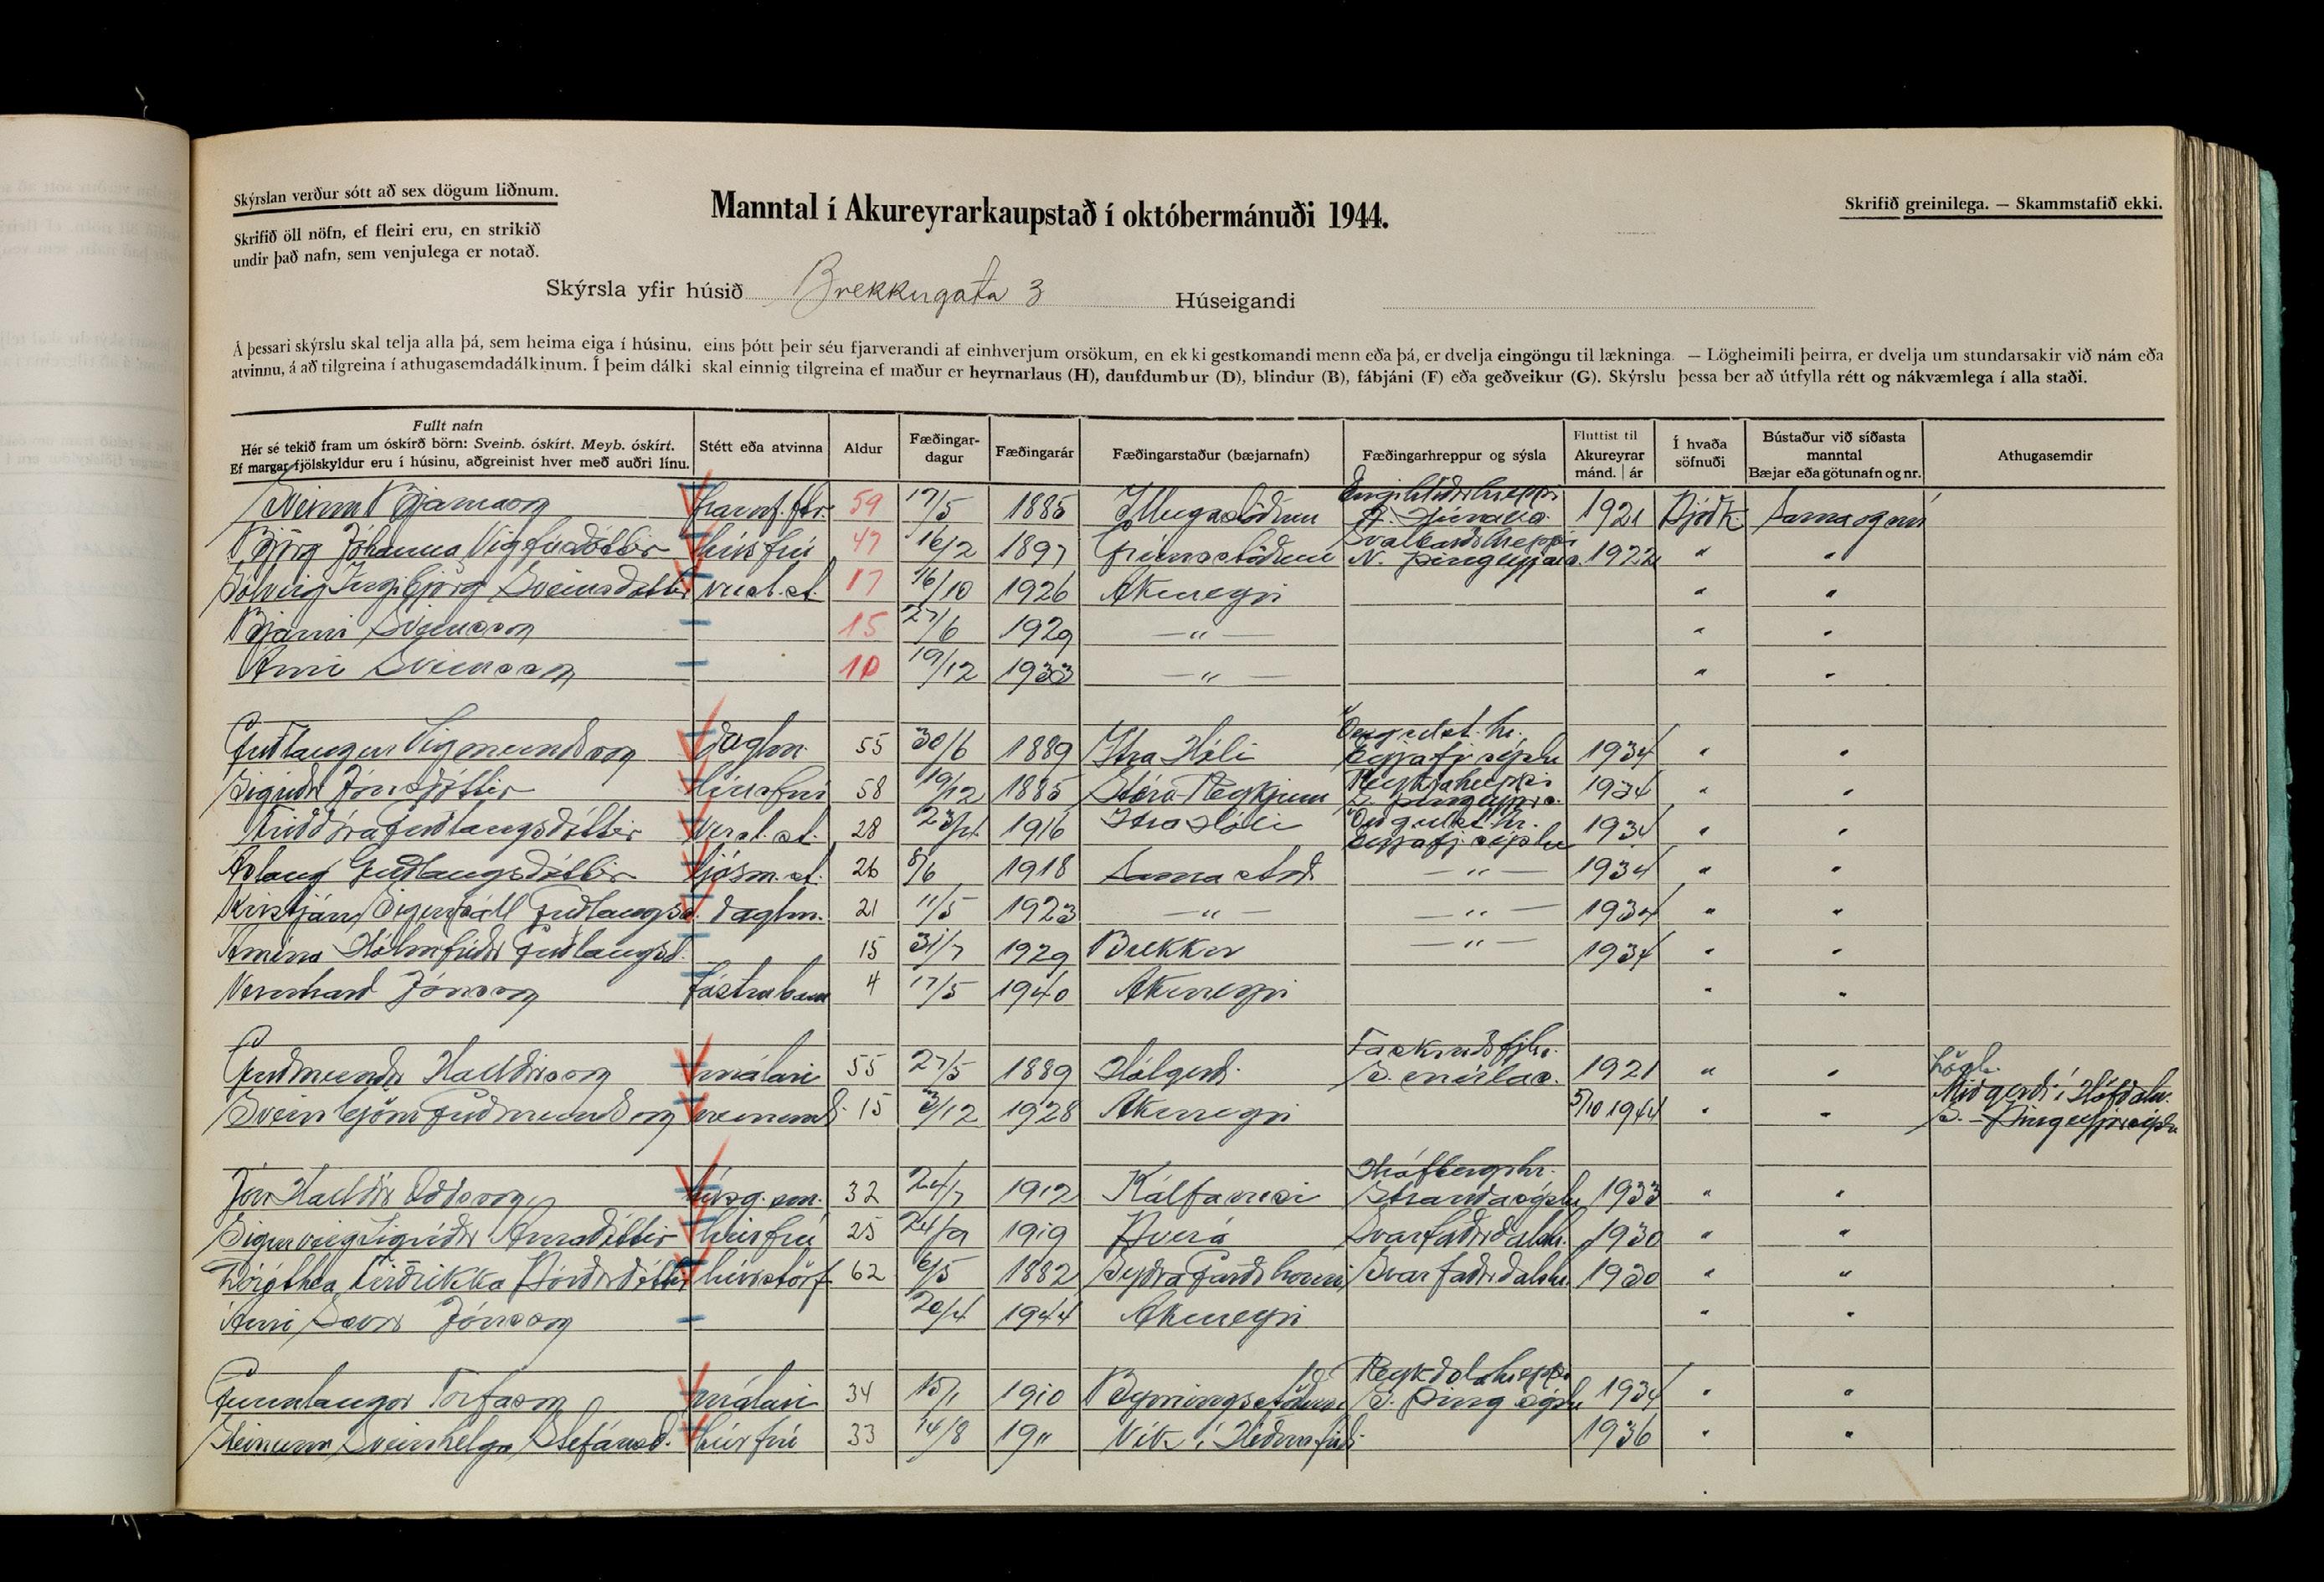 Skýrslan verður sótt að sex dögum liðnum.
Skrifið öll nöfn, ef fleiri eru, en strikið
undir það nafn, sem venjulega er notað.
Manntal í Akureyrarkaupstað í októbermánuði 1944.
Skrifið greinilega. — Skammstafið ekki.
Skýrsla yfir húsið Brekkugata 3 Húseigandi
Á þessari skýrslu skal telja alla þá, sem heima eiga í húsinu, eins þótt þeir séu fjarverandi af einhverjum orsökum, en ekki gestkomandi menn eða þá, er dvelja eingöngu til lækninga. — Lögheimili þeirra, er dvelja um stundarsakir við nám eða
atvinnu, á að tilgreina í athugasemdadálkinum. Í þeim dálki skal einnig tilgreina ef maður er heyrnarlaus (H), daufdumbur (D), blindur (B), fábjáni (F) eða geðveikur (G). Skýrslu þessa ber að útfylla rétt og nákvæmlega í alla staði.
Fullt nafn
Hér sé tekið fram um óskírð börn: Sveinb. óskírt. Meyb. óskírt.
Ef margar fjölskyldur eru í húsinu, aðgreinist hver með auðri línu.
Stétt eða atvinna
Aldur
Fæðingar-
dagur
Fæðingarár
Fæðingarstaður (bæjarnafn)
Fæðingarhreppur og sýsla
Fluttist til
Akureyrar
mánd. | ár
Í hvaða
söfnuði
Bústaður við síðasta
manntal
Bæjar eða götunafn og nr.
Athugasemdir
Sveinn Bjarnason framf.ftr. 59 17/5 1885 Illugastöðum Engihlíðarhreppi A. Húnavs. 1921 Þjóðk. Sama og nú
Björg Jóhanna Vigfúsdóttir húsfrú 47 16/2 1897 Grímsstöðum Svalbarðshreppi N. Þingeyjars. 1922 " "
Sólveig Ingibjörg Sveinsdóttir versl.st. 17 16/10 1926 Akureyri " "
Bjarni Sveinsson 15 27/6 1929 — " — " "
Árni Sveinsson 10 19/12 1933 — " — " "
Guðlaugur Sigmundsson daglm. 55 30/6 1889 Ytra Hóli Öngulst.hr. Eyjafj.sýslu 1934 " "
Sigríður Jónsdóttir húsfrú 58 19/12 1885 Stóru-Reykjum Reykjahreppi S. Þingeyjars. 1934 " "
Friðdóra Guðlaugsdóttir versl.st. 28 23/4 1916 Ytra Hóli Öngulst.hr. Eyjafj.sýslu 1934 " "
Áslaug Guðlaugsdóttir ljósm.st. 26 8/6 1918 Sama stað — " — 1934 " "
Kristján Sigurpáll Guðlaugss. daglm. 21 11/5 1923 — " — — " — 1934 " "
Amína Hólmfríður Guðlaugsd. 15 31/7 1929 Brekku — " — 1934 " "
Vernharð Jónsson fósturbarn 4 17/5 1940 Akureyri " "
Guðmundur Halldórsson málari 55 27/5 1889 Hólgerði Fáskrúðsfjhr. S. múlas. 1921 " "
Sveinbjörn Guðmundsson nemandi 15 3/12 1928 Akureyri 5/10 1944 " " Lögh. Miðgerði í Höfðahv. S.-Þingeyjarsýslu
Jón Halldór Oddsson húsg.sm. 32 24/7 1912 Kálfanesi Hrófbergshr. Strandasýslu 1933 " "
Sigurveig Sigríður Árnadóttir húsfrú 25 24/9 1919 Þverá Svarfaðardalshr. 1930 " "
Dóróthea Friðrikka Þórðardóttir hússtörf 62 6/5 1882 Syðra Garðshorni Svarfaðardalshr. 1930 " "
Árni Jónsson 20/4 1944 Akureyri " "
Gunnlaugur Torfason málari 34 15/1 1910 Reykdalahreppi S. Þing.sýslu 1934 " "
Steinunn Sveinhelga Stefánsd. húsfrú 33 14/8 19" Vík í Héðinsfirði 1936 " "